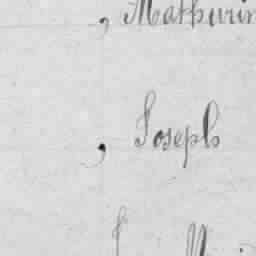 , Mathurin
, Joseph